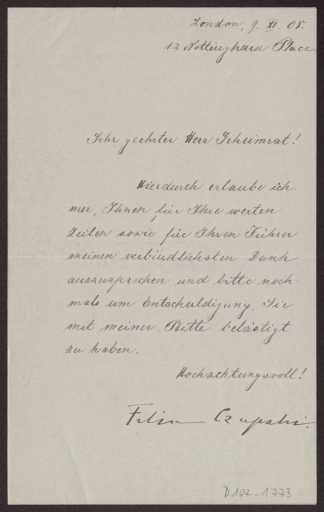 London, 9. XI. 05.
12 Nottingham Place
Sehr geehrter Herr Geheimrat!
Hierdurch erlaube ich
mir, Ihnen für Ihre werten
Zeilen sowie für Ihren Führer
meinen verbindlichsten Dank
auszusprechen und bitte noch
mals um Entschuldigung, Sie
mit meiner Bitte belästigt
zu haben.
Hochachtungsvoll!
D 102 - 1773